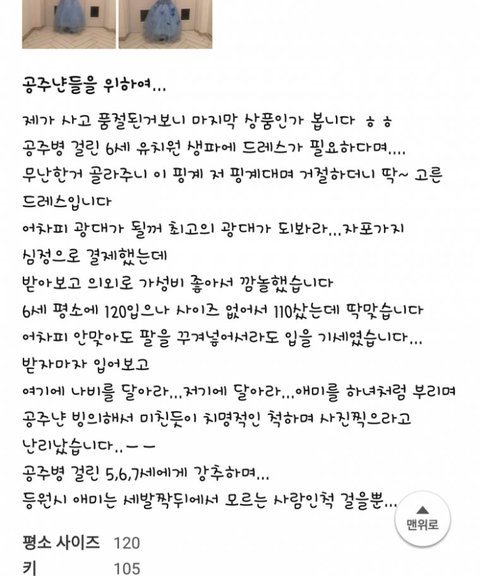 공주냔들을 위하여...
제가 사고 품절된거보니 마지막 상품인가 봅니다 ㅎㅎ
공주병 걸린 6세 유치원 생파에 드레스가 필요하다며....
무난한거 골라주니 이 핑계 저 핑계대며 거절하더니 딱~ 고른
드레스입니다
어차피 광대가 될꺼 최고의 광대가 되봐라...자포가지
심정으로 결제했는데
받아보고 의외로 가성비 좋아서 깜놀했습니다
6세 평소에 120입으나 사이즈 없어서 110샀는데 딱맞습니다
어차피 안맞아도 팔을 꾸겨넣어서라도 입을 기세였습니다...
받자마자 입어보고
여기에 나비를 달아라...저기에 달아라...애미를 하녀처럼 부리며
공주냔 빙의해서 미친듯이 치명적인 척하며 사진찍으라고
난리났습니다..ㅡㅡ
공주병 걸린 5,6,7세에게 강추하며...
등원시 애미는 세발짝뒤에서 모르는 사람인척 걸을뿐...
맨위로
평소 사이즈 120
키 105